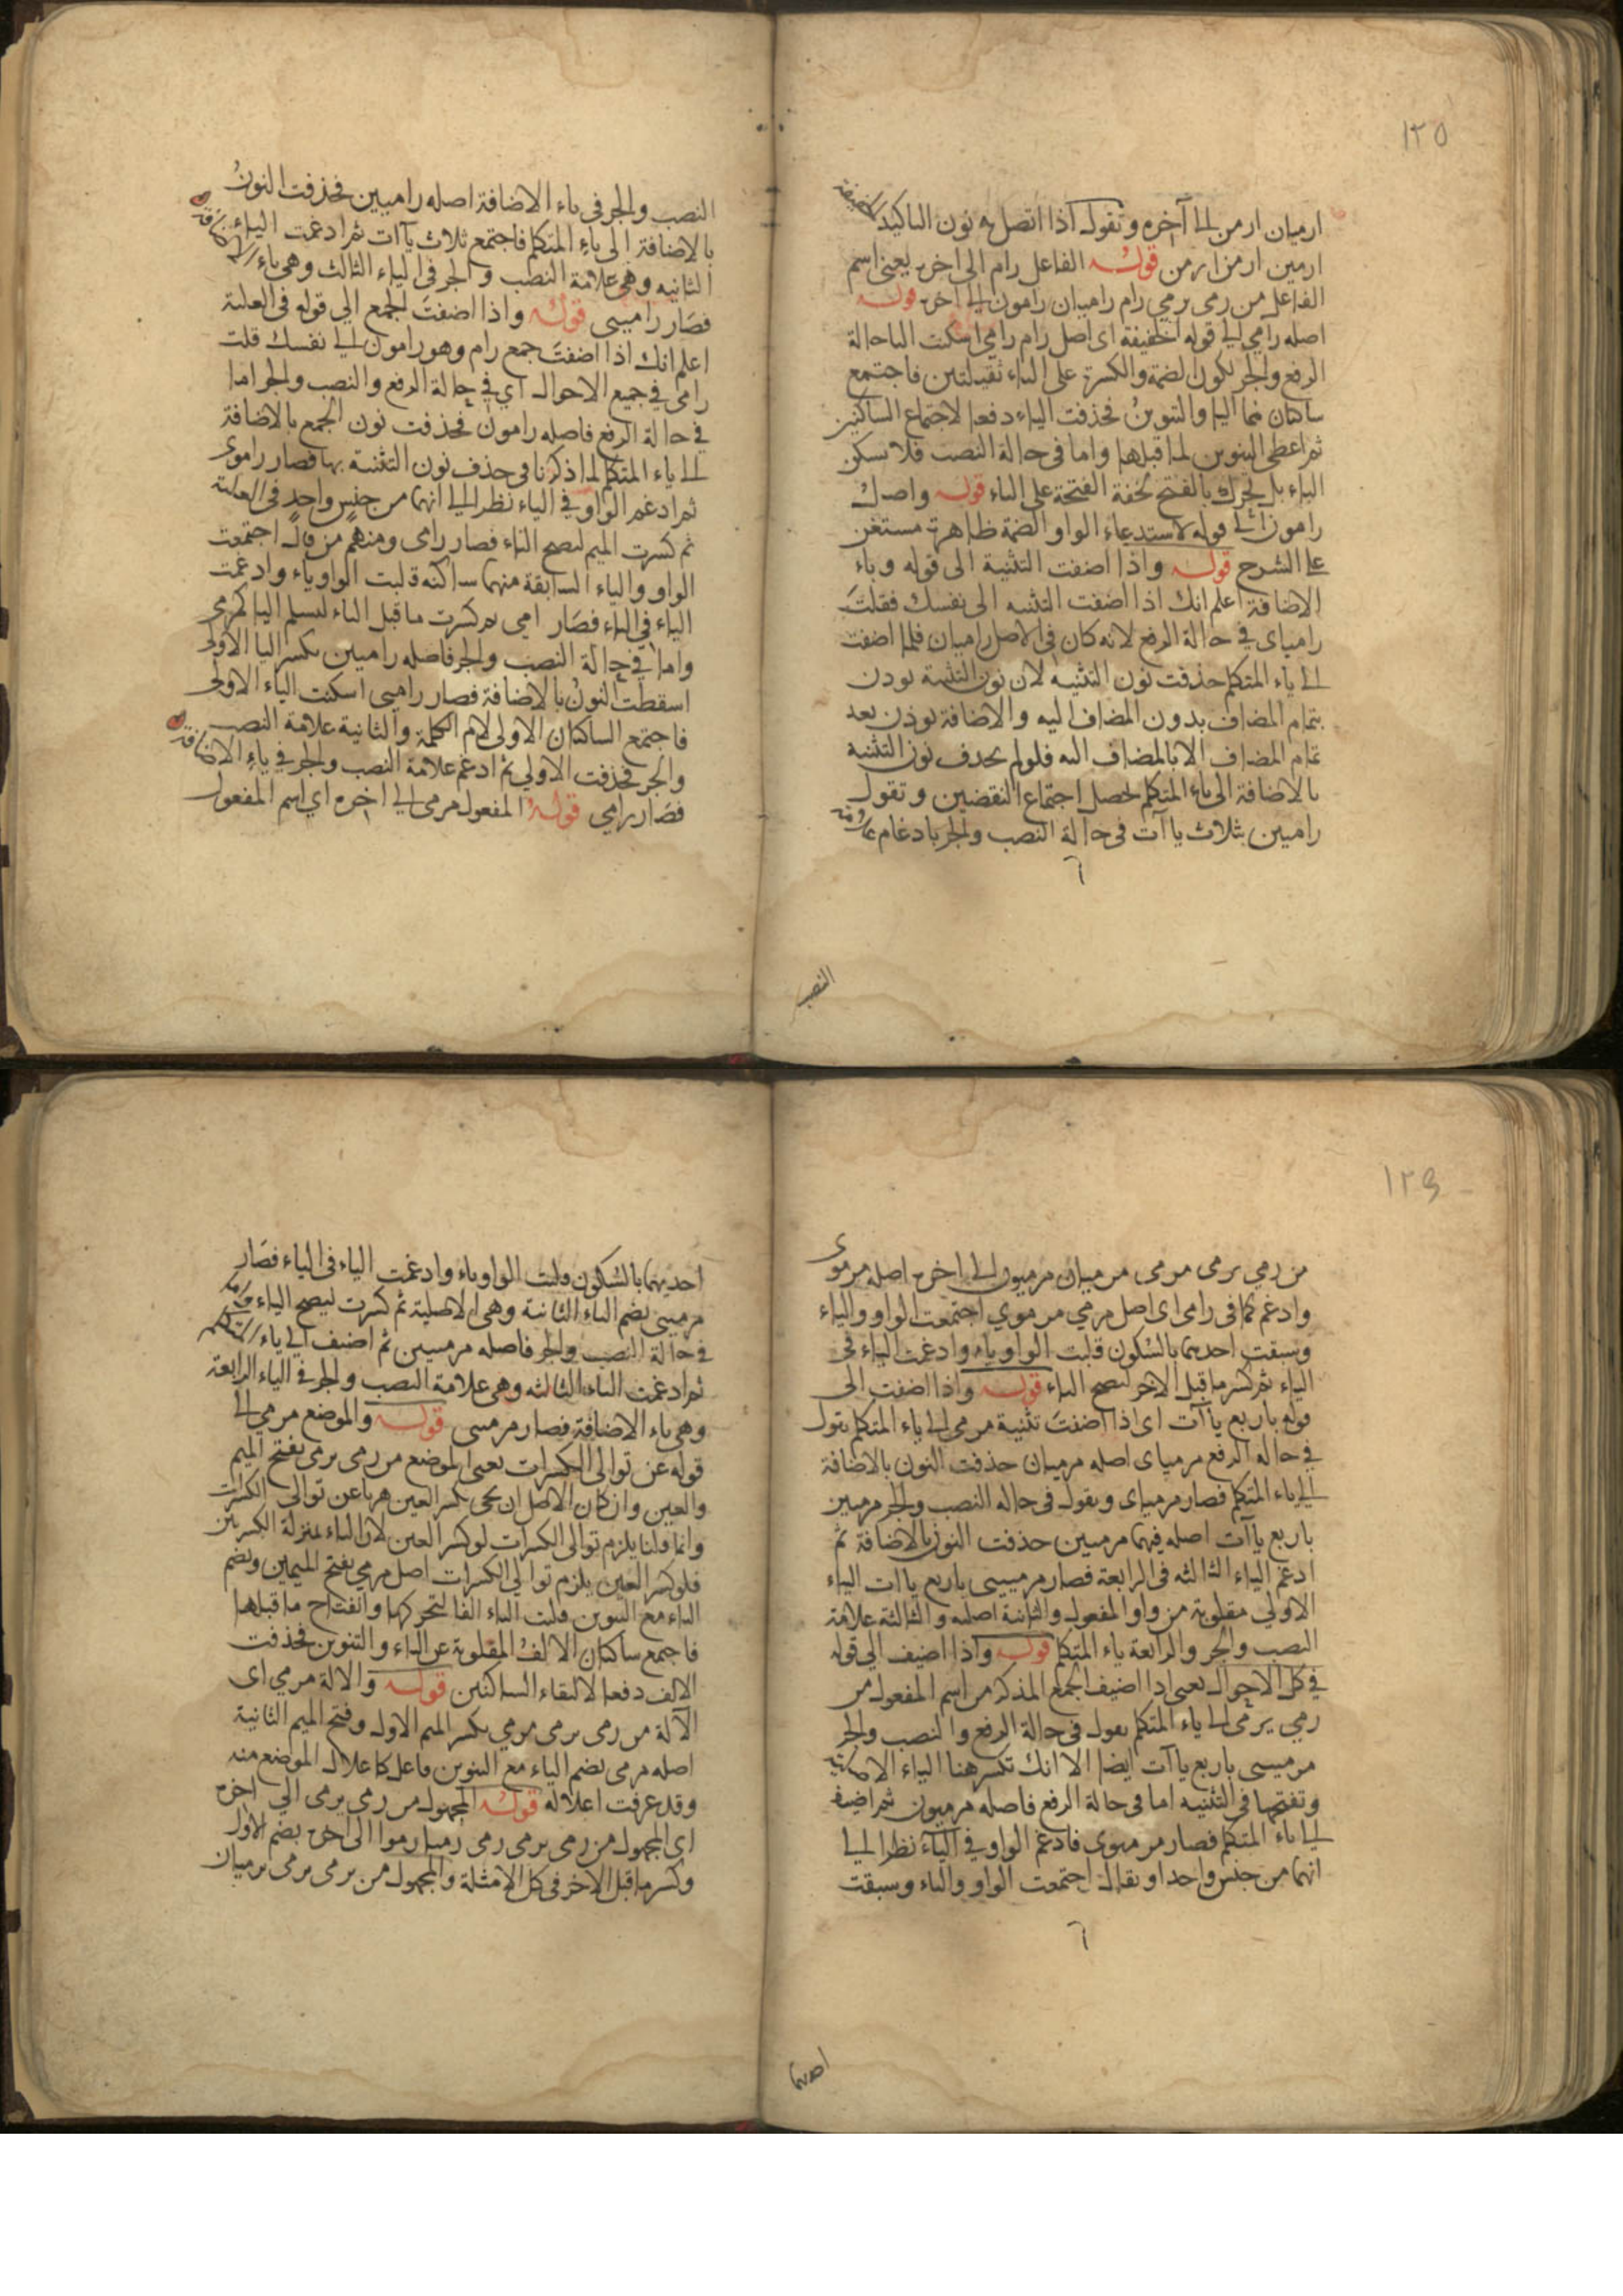 ١٢٥
ارميان ارمن الى آخره وتقول اذا اتصل به نون التاكيد الخفيفة
ارمين ارمن ارمن قوله الفاعل رام الى اخره يعنى اسم
الفاعل من رمى يرمي رام راميان رامون الى اخره قوله
اصله رامي الى قوله الخفيفة اى اصل رام رامي اسكنت اليا حالة
الرفع والجر لكون الضمة والكسرة على الياء ثقيلتين فاجتمع
ساكنان هما اليا والتنوين فحذفت الياء دفعا لاجتماع الساكنين
ثم اعطى التنوين لما قبلها واما فى حالة النصب فلا تسكن
الياء بل تحرك بالفتح لخفة الفتحة على الياء قوله واصل
رامون الى قوله لاستدعاء الواو الضمة ظاهرة مستغن
عن الشرح قوله واذا اضفت التثنية الى قوله وباء
الاضافة اعلم انك اذا اضفت التثنيه الى نفسك فقلت
رامياى في حالة الرفع لانه كان فى الاصل راميان فلما اضفت
الى ياء المتكلم حذفت نون التثنيه لان نون التثنية توذن
بتمام المضاف بدون المضاف اليه والاضافة توذن بعد
تمام المضاف الا بالمضاف اليه فلو لم يحذف نون التثنية
بالاضافة الى ياء المتكلم لحصل اجتماع النقضين وتقول
راميين بثلاث ياآت فى حالة النصب والجر بادغام علامة
النصب
النصب والجر فى ياء الاضافة اصله راميين فحذفت النون
بالاضافة الى ياء المتكلم فاجتمع ثلاث ياآت ثم ادغمت الياء
الثانيه وهى علامة النصب والجر فى الياء الثالث وهى ياء الاضافة
فصار راميى قوله واذا اضفت الجمع الي قوله فى العلية
اعلم انك اذا اضفت جمع رام وهو رامون الى نفسك قلت
رامى في جميع الاحوال اي في حالة الرفع والنصب والجر اما
في حالة الرفع فاصله رامون فحذفت نون الجمع بالاضافة
الى ياء المتكلم لما ذكرنا فى حذف نون التثنية بها فصار راموى
ثم ادغم الواو في الياء نظرا الى انهما من جنس واحد فى العلية
ثم كسرت الميم لتصح الياء فصار رامى ومنهم من قال اجتمعت
الواو والياء السابقة منهما ساكنه قلبت الواو ياء وادغمت
الياء في الياء فصار امى ثم كسرت ما قبل الياء لتسلم اليا كمرمى
واما في حالة النصب والجر فاصله راميين بكسر اليا الاولى
اسقطت النون بالاضافة فصار راميى اسكنت الياء الاولى
فاجتمع الساكنان الاولى لام الكلمة والثانية علامة النصب
والجر فحذفت الاولي ثم ادغم علامة النصب والجر في ياء الاضافة
فصار رامي قوله المفعول مرمى الى اخره اي اسم المفعول
١٢٦
من رمي يرمى مرمى مرميان مرميون الى اخره اصله مرموى
وادغم كما فى رامى اى اصل مرمي مرموي اجتمعت الواو والياء
وسبقت احديهما بالسكون قلبت الواو ياء وادغمت الياء فى
الياء ثم كسر ما قبل الاخر لتصح الياء قوله واذا اضفت الى
قوله باربع ياآت اى اذا اضفت تثنية مرمى الى ياء المتكلم تقول
في حاله الرفع مرمياى اصله مرميان حذفت النون بالاضافة
الى ياء المتكلم فصار مرمياى وتقول فى حاله النصب والجر مرميين
باربع ياآت اصله فيهما مرميين حذفت النون بالاضافة ثم
ادغم الياء الثالثه فى الرابعة فصار مرمييى باربع ياات الياء
الاولي مقلوبة من واو المفعول والثانية اصليه والثالثه علامة
النصب والجر والرابعة ياء المتكلم قوله واذا اضيف الى قوله
في كل الاحوال يعنى اذا اضيف الجمع المذكر من اسم المفعول من
رمي يرمى الى ياء المتكلم يقول فى حالة الرفع والنصب والجر
مرميى باربع ياآت ايضا الا انك تكسر هنا الياء الاصلية
وتفتحها فى التثنيه اما فى حالة الرفع فاصله مرميون ثم اضيف
الى ياء المتكلم فصار مرميوى فادغم الواو في الياء نظرا الى
انهما من جنس واحد او يقال اجتمعت الواو والياء وسبقت
احديهما
احديهما بالسكون قلبت الواو ياء وادغمت الياء فى الياء فصار
مرميى بضم الياء الثانية وهى الاصلية ثم كسرت ليصح الياء واما
في حالة النصب والجر فاصله مرميين ثم اضيف الى ياء المتكلم
ثم ادغمت الياء الثالثه وهى علامة النصب والجر في الياء الرابعة
وهى ياء الاضافة فصار مرميى قوله والموضع مرمي الى
قوله عن توالى الكسرات يعنى الموضع من رمى يرمى بفتح الميم
والعين وان كان الاصل ان يجى بكسر العين هربا عن توالى الكسرات
وانما قلنا يلزم توالى الكسرات لو كسر العين لان الياء بمنزلة الكسرتين
فلو كسر العين يلزم توالي الكسرات اصل مرمي بفتح الميمين وبضم
الياء مع التنوين قلبت الياء الفا لتحركها وانفتاح ما قبلها
فاجتمع ساكنان الالف المقلوبة عن الياء والتنوين فحذفت
الالف دفعا لالتقاء الساكنين قوله والالة مرمي اى
الآلة من رمى يرمى مرمي بكسر الميم الاول وفتح الميم الثانية
اصله مرمى بضم الياء مع التنوين فاعل كاعلال الموضع منه
وقد عرفت اعلاله قوله المجهول من رمى يرمى الي اخره
اى المجهول من رمى يرمى رمى رميا رموا الى اخره بضم الاول
وكسر ما قبل الاخر فى كل الامثلة والمجهول من يرمى يرمى يرميان